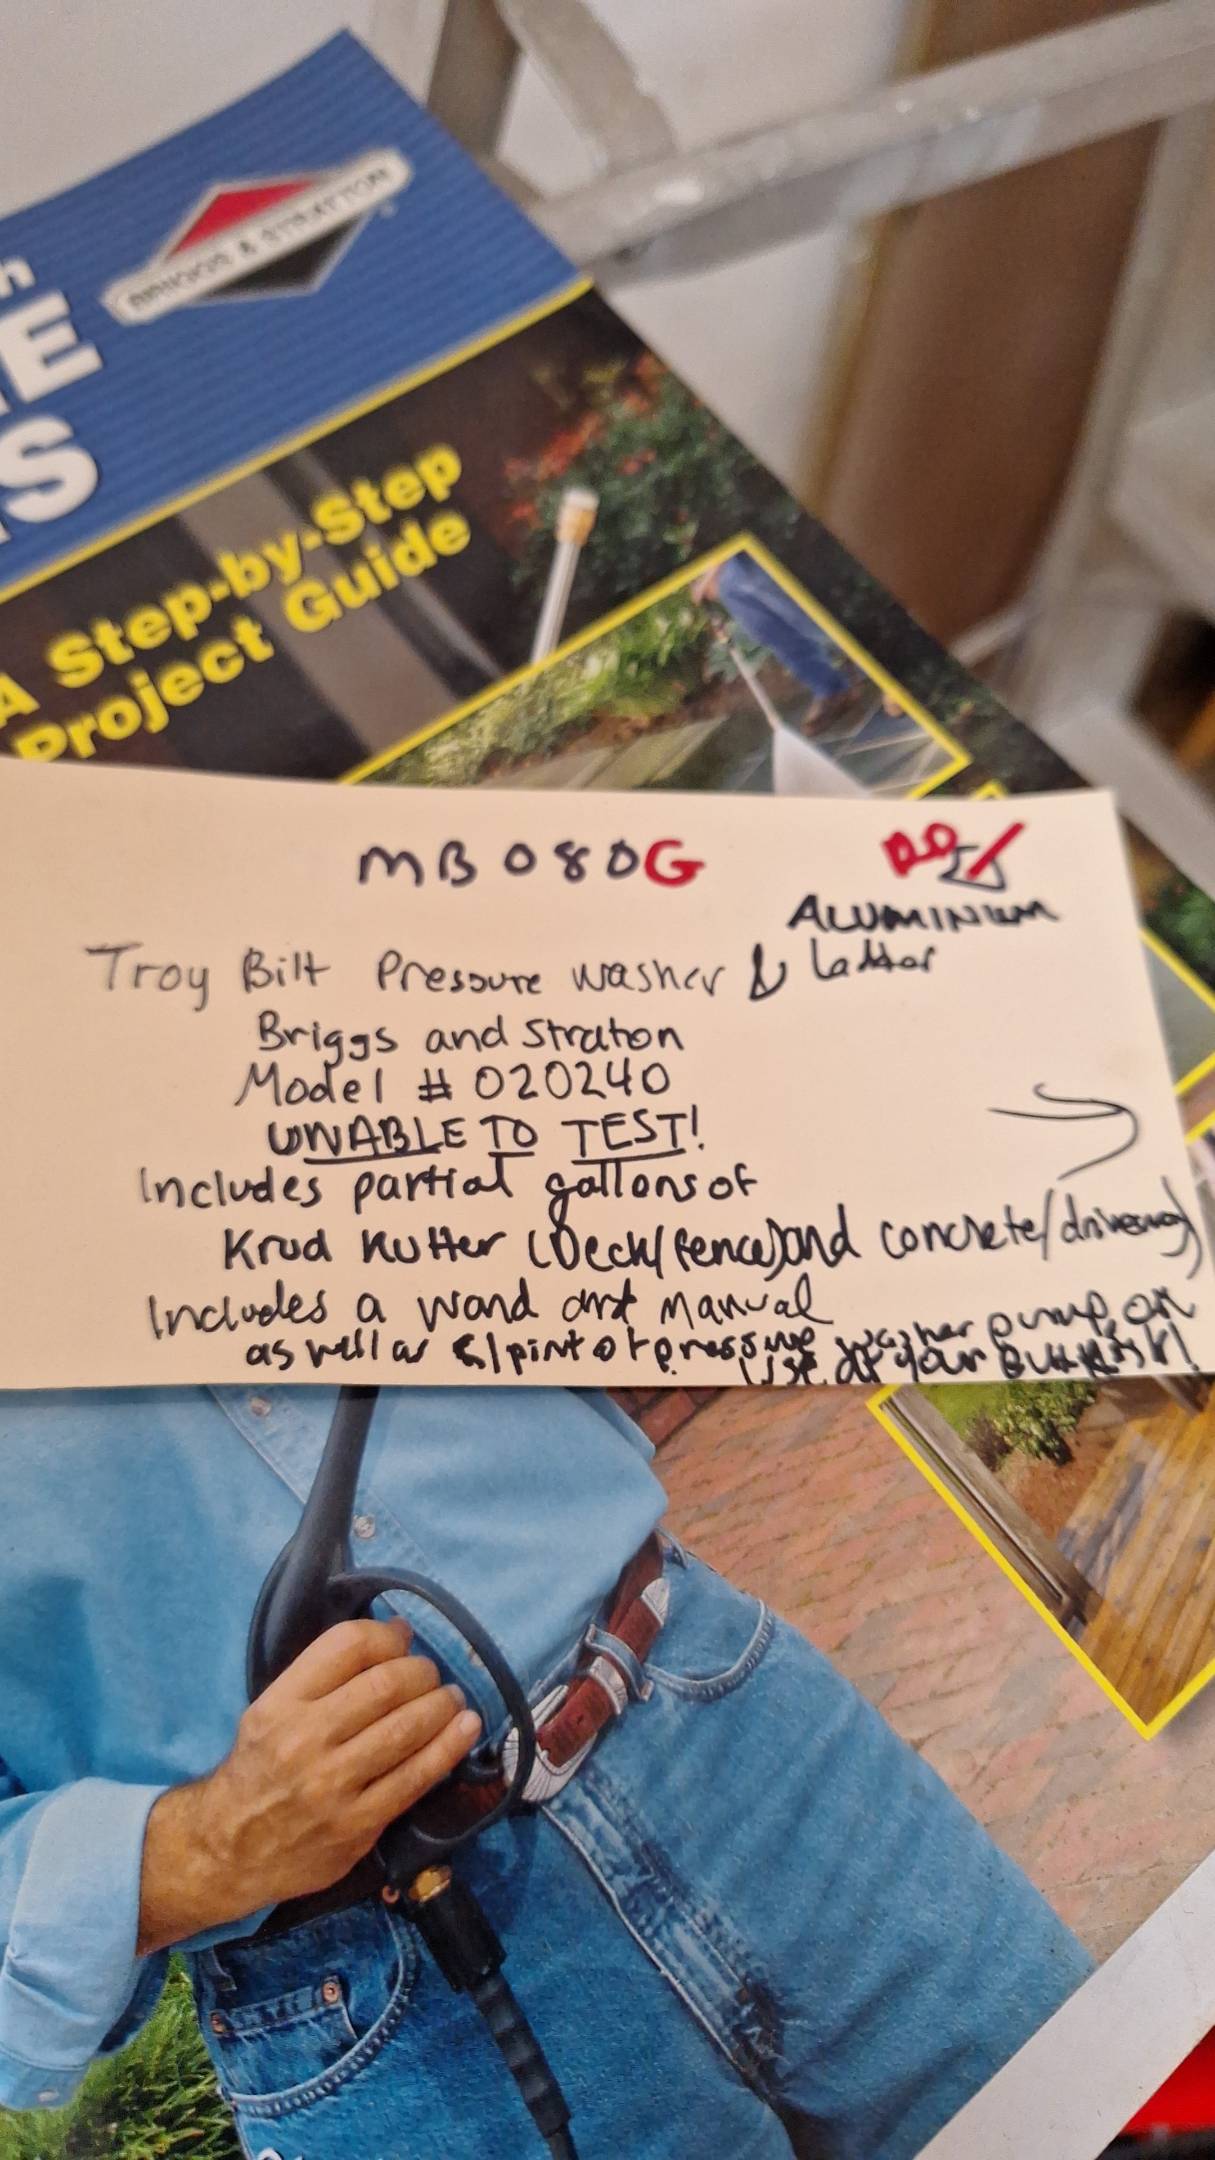 h
E
S
BRIGGS & STRATTON
A Step-by-Step
Project Guide
MB080G
ALUMINIUM
Troy Bilt Pressure washer & ladder
Briggs and Straton
Model # 020240
UNABLE TO TEST!
Includes partial gallons of
Krud Kutter (Deck/fence) and concrete/driveway)
Includes a wand and Manual
as well as pint of pressure washer pump oil
Use at your own risk!